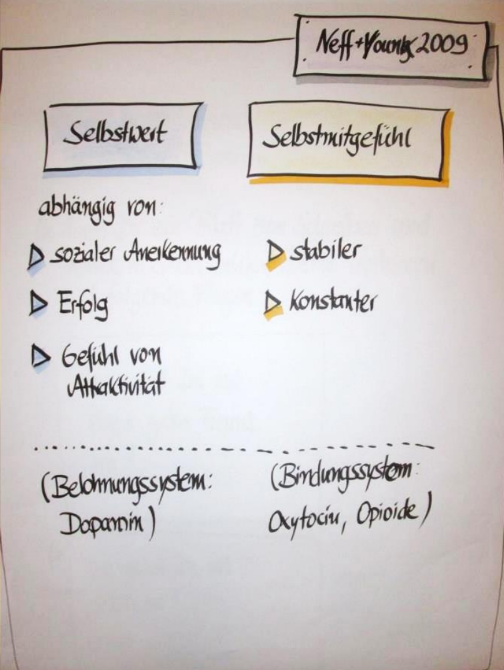 Neff + Vounk 2009
Selbstwert
Selbstmitgefühl
abhängig von:
sozialer Anerkennung
Erfolg
Gefühl von
Attraktivität
stabiler
Konstanter
(Belohnungssystem:
Dopamin)
(Bindungssystem:
Oxytocin, Opioide)